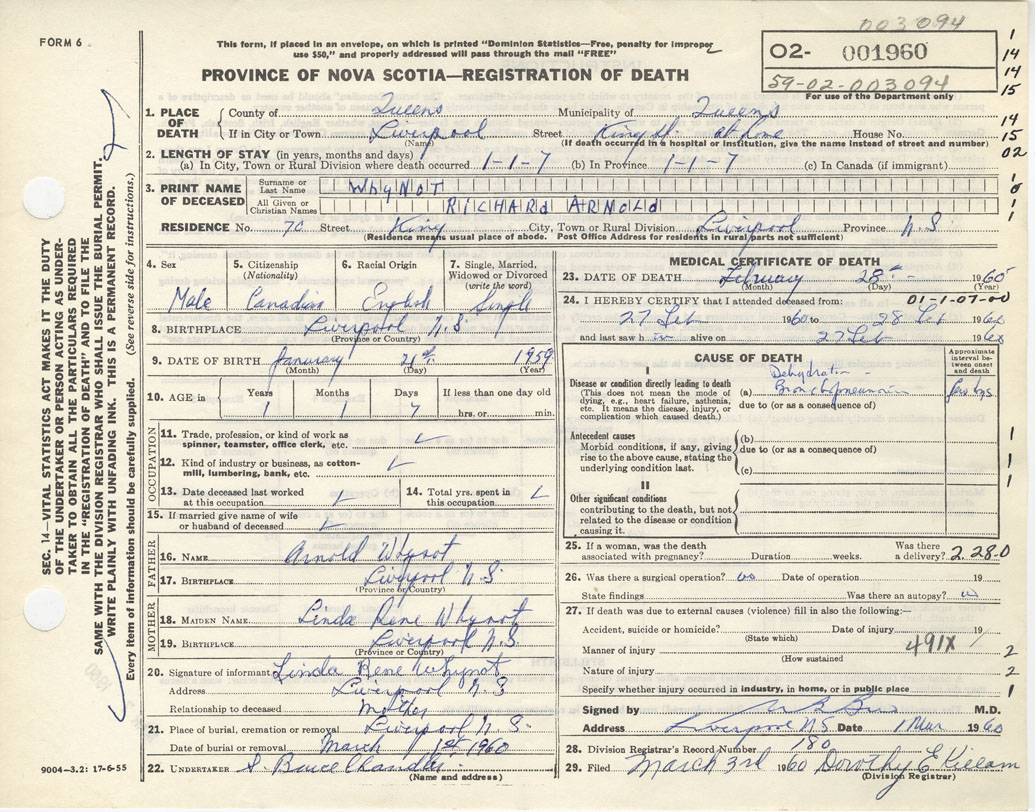 003094
FORM 6
This form, if placed in an envelope, on which is printed "Dominion Statistics—Free, penalty for improper
use $50," and properly addressed will pass through the mail "FREE"
O2- 001960
59-02-003094
For use of the Department only
PROVINCE OF NOVA SCOTIA—REGISTRATION OF DEATH
1
14
14
15
1. PLACE OF DEATH
County of Queens Municipality of Queens
If in City or Town Liverpool Street King St. at home House No.
(Name) (If death occurred in a hospital or institution, give the name instead of street and number)
14
15
02
2. LENGTH OF STAY (in years, months and days)
(a) In City, Town or Rural Division where death occurred 1-1-7 (b) In Province 1-1-7 (c) In Canada (if immigrant)
3. PRINT NAME OF DECEASED
Surname or Last Name WhyNoT
All Given or Christian Names RICHARd ARNOLd
RESIDENCE No. 70 Street King City, Town or Rural Division Liverpool Province N.S.
(Residence means usual place of abode. Post Office Address for residents in rural parts not sufficient)
4. Sex
Male
5. Citizenship
(Nationality)
Canadian
6. Racial Origin
English
7. Single, Married, Widowed or Divorced
(write the word)
Single
8. BIRTHPLACE Liverpool N.S
(Province or Country)
9. DATE OF BIRTH January 21st 1959
(Month) (Day) (Year)
10. AGE in
Years Months Days If less than one day old
1 1 7 hrs. or min.
OCCUPATION
11. Trade, profession, or kind of work as
spinner, teamster, office clerk, etc.
12. Kind of industry or business, as cotton-
mill, lumbering, bank, etc.
13. Date deceased last worked
at this occupation
14. Total yrs. spent in
this occupation
15. If married give name of wife
or husband of deceased
FATHER
16. NAME Arnold Whynot
17. BIRTHPLACE Liverpool N.S
(Province or Country)
MOTHER
18. MAIDEN NAME Linda Rene Whynot
19. BIRTHPLACE Liverpool N.S
(Province or Country)
20. Signature of informant Linda Rene Whynot
Address Liverpool N.S
Relationship to deceased Mother
21. Place of burial, cremation or removal Liverpool N.S.
Date of burial or removal March 1st 1960
22. UNDERTAKER S. Bruce Chandler
(Name and address)
MEDICAL CERTIFICATE OF DEATH
23. DATE OF DEATH February 28th 1960
(Month) (Day) (Year)
24. I HEREBY CERTIFY that I attended deceased from: 01-1-07-00
27 Feb 1960 to 28 Feb 1960
and last saw him alive on 27 Feb 1960
CAUSE OF DEATH
Approximate interval between onset and death
I
Disease or condition directly leading to death
(This does not mean the mode of
dying, e.g., heart failure, asthenia,
etc. It means the disease, injury, or
complication which caused death.)
Dehydration
(a) Bronchopneumonia few hrs.
due to (or as a consequence of)
Antecedent causes
Morbid conditions, if any, giving
rise to the above cause, stating the
underlying condition last.
(b)
due to (or as a consequence of)
(c)
1
1
1
II
Other significant conditions
contributing to the death, but not
related to the disease or condition
causing it.
25. If a woman, was the death
associated with pregnancy? Duration weeks. Was there a delivery? 2.28.0
26. Was there a surgical operation? no Date of operation 19
State findings Was there an autopsy? no
27. If death was due to external causes (violence) fill in also the following:—
Accident, suicide or homicide? Date of injury 19
(State which)
491X
Manner of injury 2
(How sustained
Nature of injury 2
Specify whether injury occurred in industry, in home, or in public place 1
Signed by M.D.
Address Liverpool NS Date 1 Mar 1960
28. Division Registrar's Record Number 180
29. Filed March 3rd 1960 Dorothy E Killam
(Division Registrar)
SEC. 14—VITAL STATISTICS ACT MAKES IT THE DUTY
OF THE UNDERTAKER OR PERSON ACTING AS UNDER-
TAKER TO OBTAIN ALL THE PARTICULARS REQUIRED
IN THE "REGISTRATION OF DEATH" AND FILE THE
SAME WITH THE DIVISION REGISTRAR WHO SHALL ISSUE THE BURIAL PERMIT.
WRITE PLAINLY WITH UNFADING INK. THIS IS A PERMANENT RECORD.
Every item of information should be carefully supplied. (See reverse side for instructions.)
9004-3.2: 17-6-55